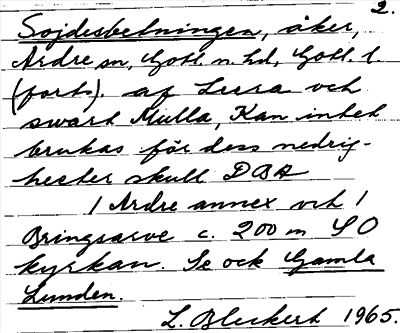 2.
Sojdesbetningen, åker,
Ardre sn, Gotl. n. hd, Gotl. l.
(forts). af Lerra och
swart Mulla, Kan intet
brukas för dess nedrig-
hester skull DBA
/ Ardre annex och /
Bringsarve c. 200 m SO
kyrkan. Se ock Gamla
Lunden.
L. Bleckert 1965.